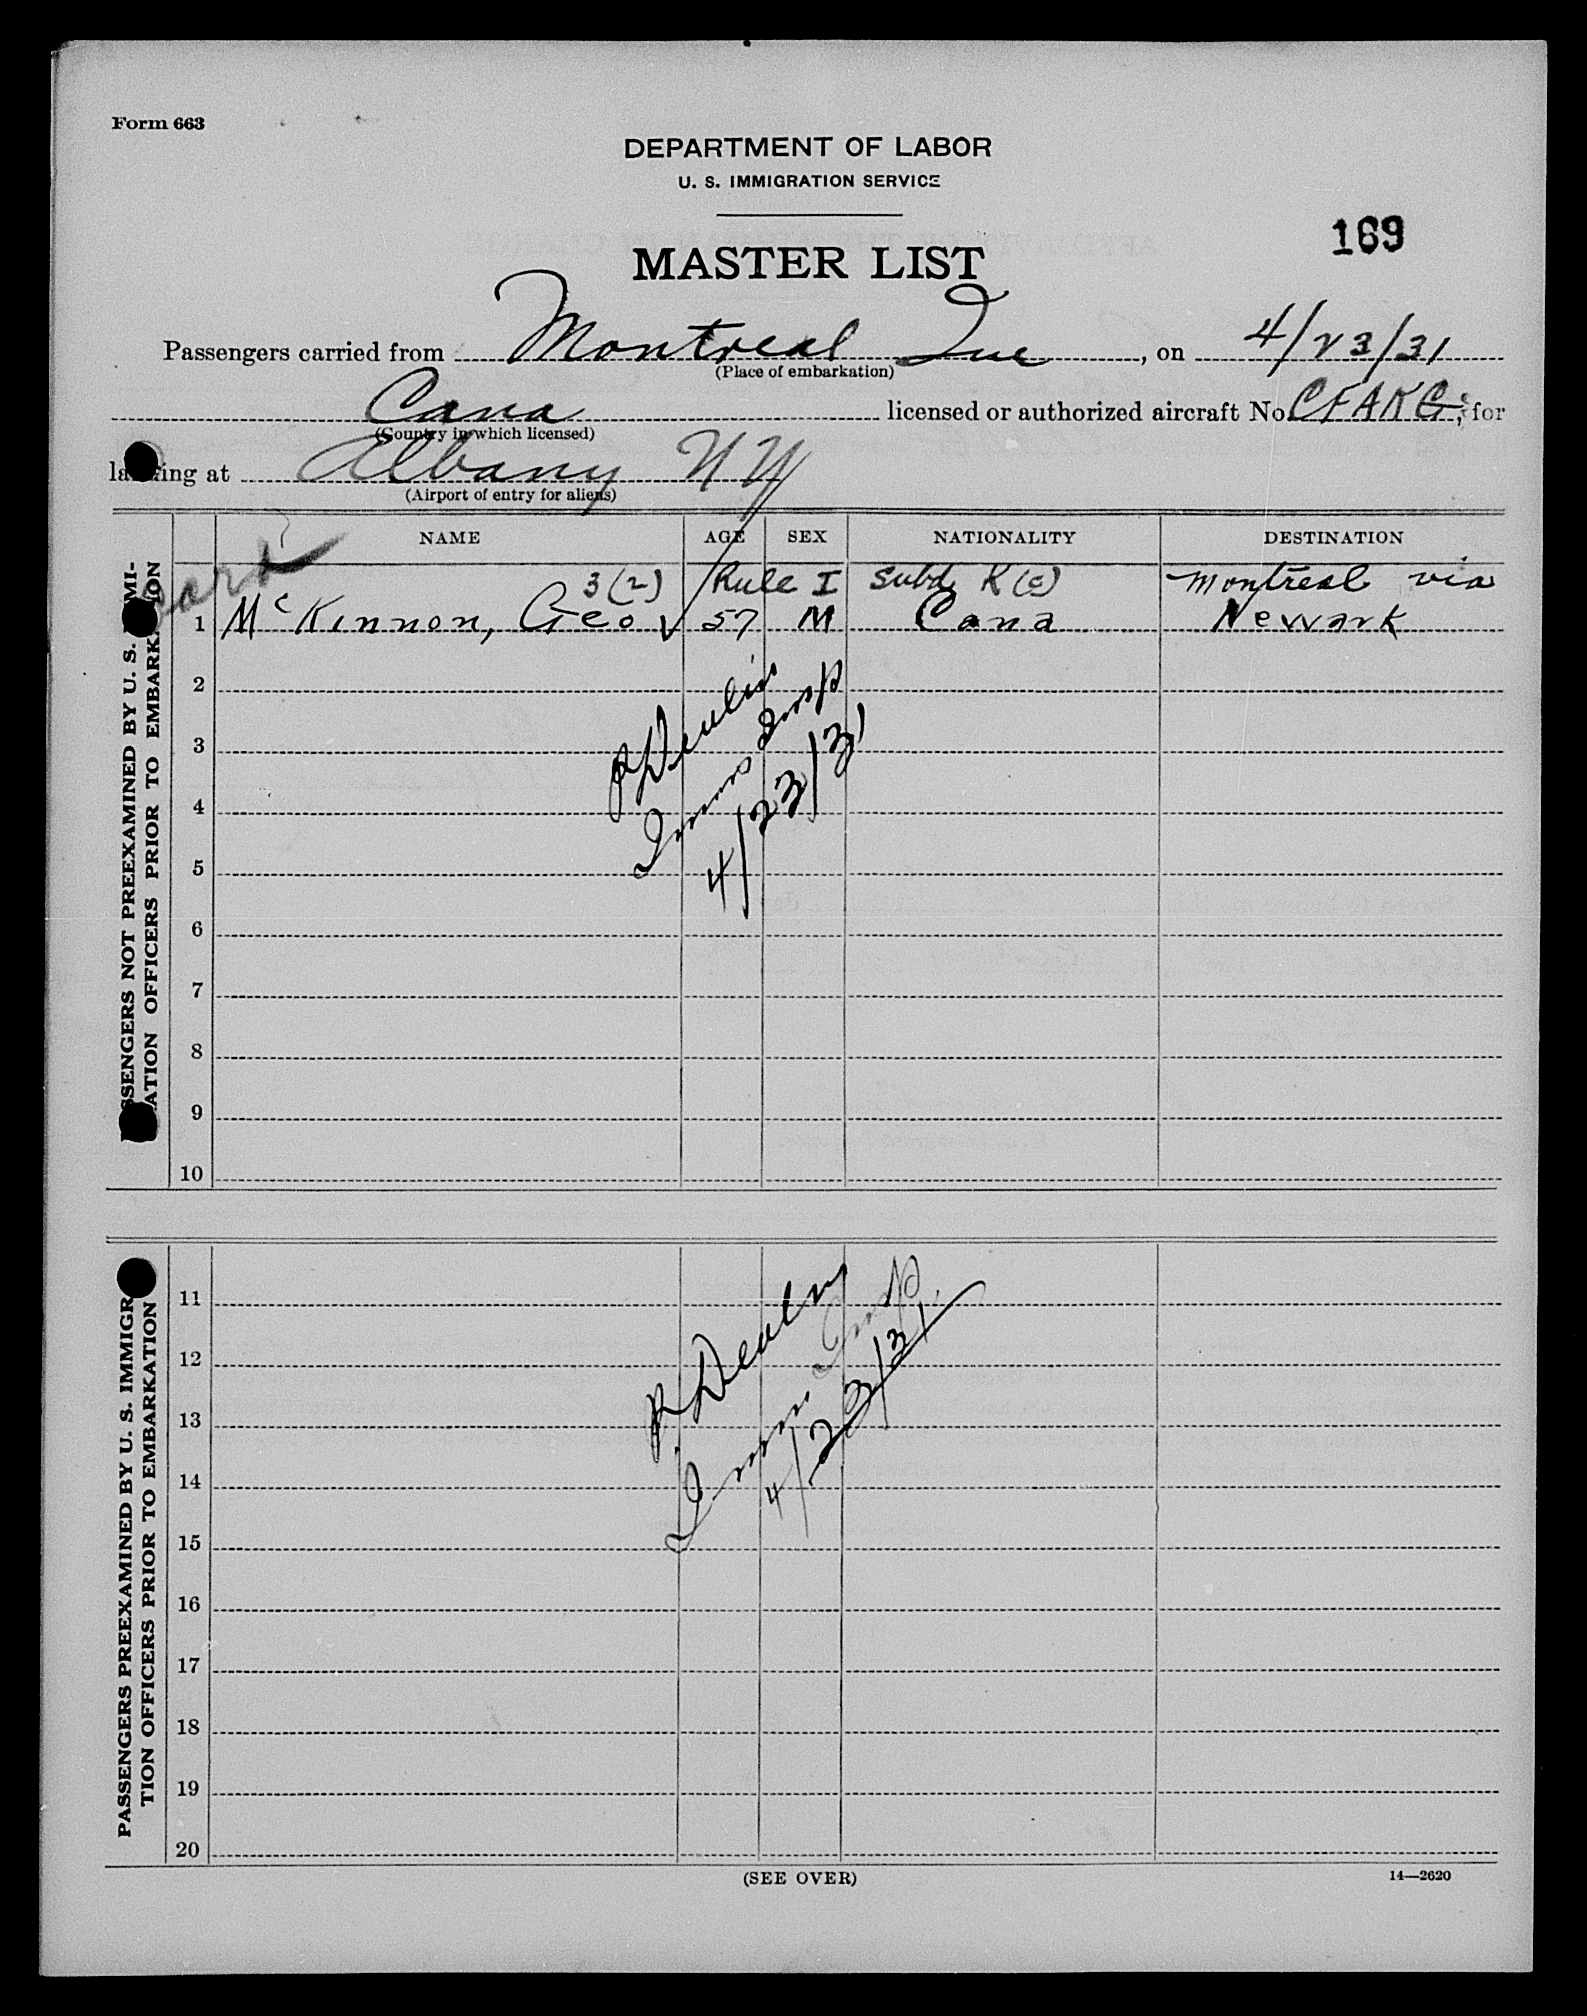 Form 663
DEPARTMENT OF LABOR
U. S. IMMIGRATION SERVICE
169
MASTER LIST
Passengers carried from Montreal Que, on 4/23/31
(Place of embarkation)
Cana licensed or authorized aircraft No. CFAKG; for
(Country in which licensed)
landing at Albany NY
(Airport of entry for aliens)
NAME AGE SEX NATIONALITY DESTINATION
3(2) Rule I Subd K(c) Montreal via
1 McKinnon, Geo 57 M Cana Newark
2
3
4
5
6
7
8
9
10
Immn Insp
4/23/31
PASSENGERS NOT PREEXAMINED BY U. S. IMMI-
GRATION OFFICERS PRIOR TO EMBARKATION
11
12
13
14
15
16
17
18
19
20
Immn Insp
4/23/31
PASSENGERS PREEXAMINED BY U. S. IMMIGRA-
TION OFFICERS PRIOR TO EMBARKATION
(SEE OVER)
14—2620